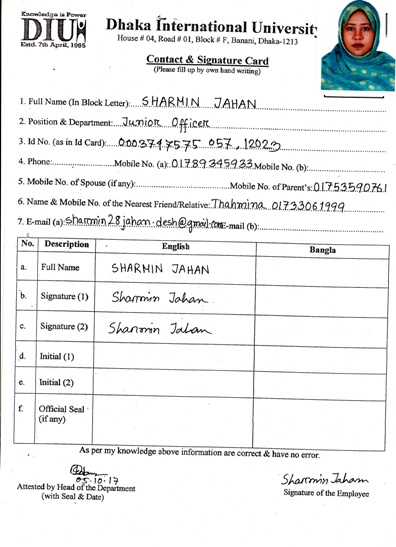 Knowledge is Power
DIU
Estd. 7th April, 1995
Dhaka International University
House # 04, Road # 01, Block # F, Banani, Dhaka-1213
Contact & Signature Card
(Please fill up by own hand writing)
1. Full Name (In Block Letter): SHARMIN JAHAN
2. Position & Department: Junior Officer
3. Id No. (as in Id Card): 0003747575 057, 12023
4. Phone: Mobile No. (a): 01789345933 Mobile No. (b):
5. Mobile No. of Spouse (if any): Mobile No. of Parent's: 01753590761
6. Name & Mobile No. of the Nearest Friend/Relative: Thahmina 01733061999
7. E-mail (a): sharmin28jahan.desh@gmail.com E-mail (b):
No. Description English Bangla
a. Full Name SHARMIN JAHAN
b. Signature (1) Sharmin Jahan
c. Signature (2) Sharmin Jahan
d. Initial (1)
e. Initial (2)
f. Official Seal (if any)
As per my knowledge above information are correct & have no error.
05.10.17
Sharmin Jahan
Attested by Head of the Department
(with Seal & Date)
Signature of the Employee